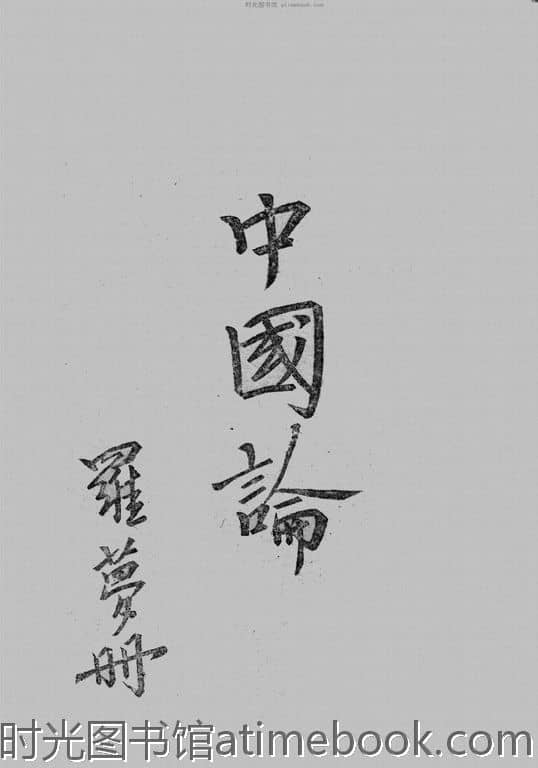 时光图书馆 atimebook.com
中國論
羅夢冊
时光图书馆atimebook.com